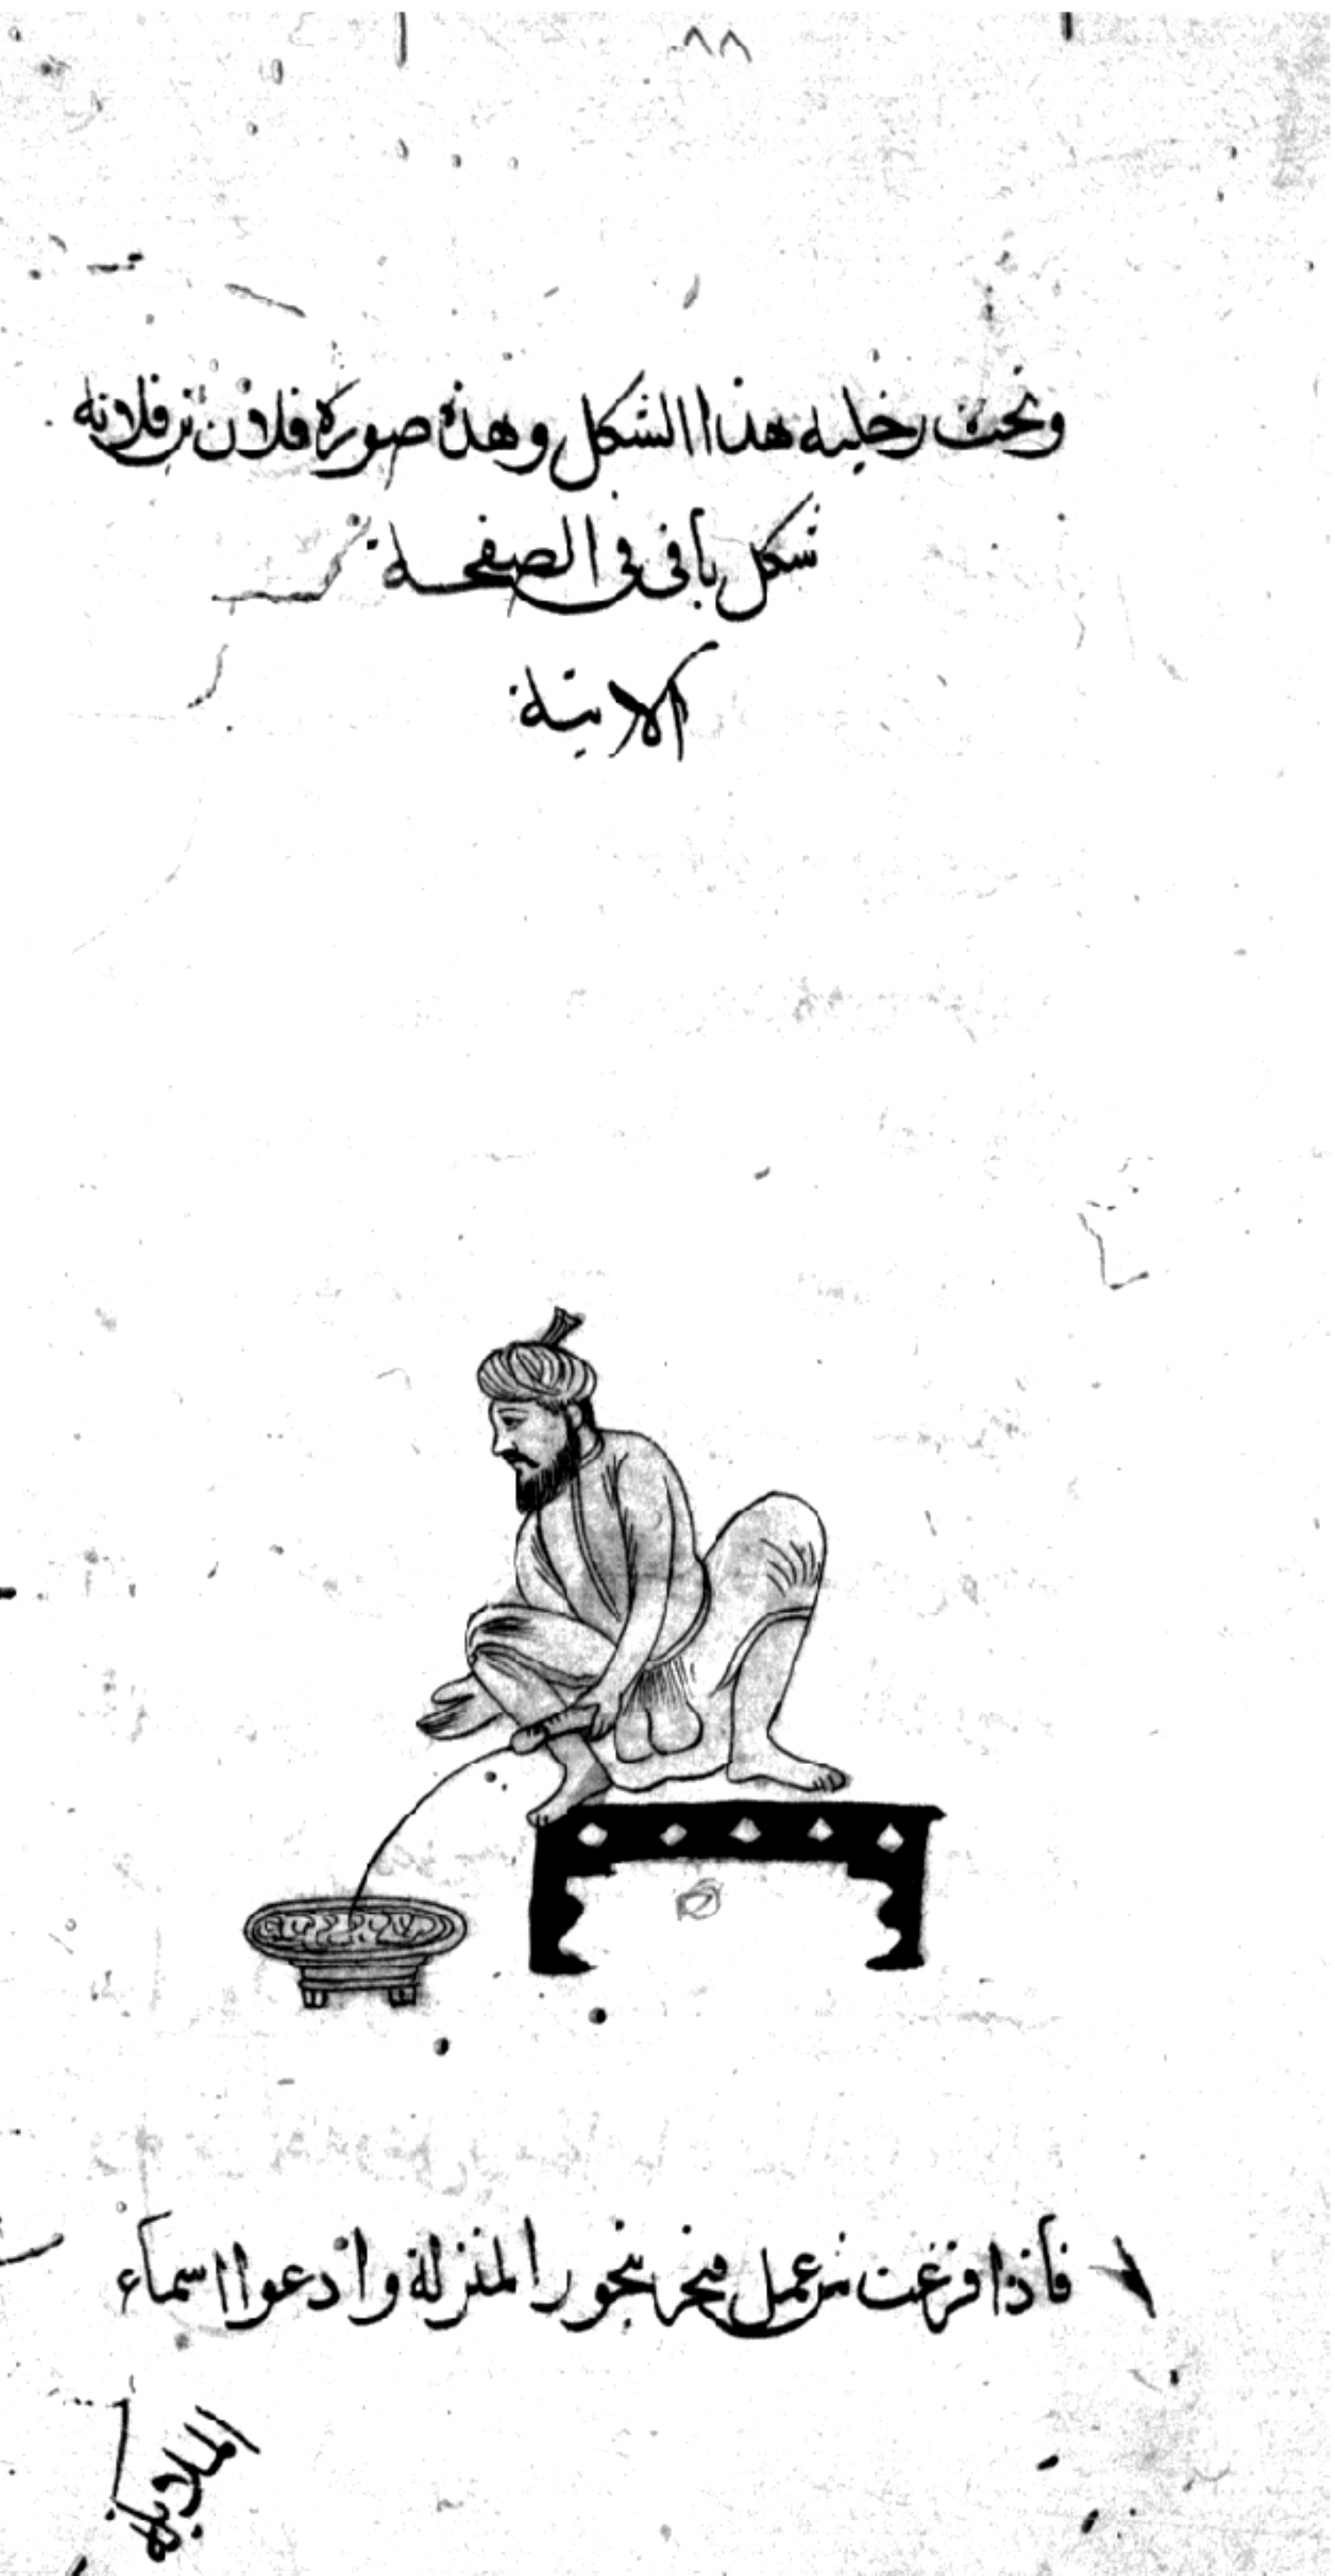 ٨٨
وتحت رجليه هذا الشكل وهذه صورة فلان بن فلانه
شكل باقى فى الصفحة
الاتية
فأذا فرغت من عمل فبخر ببخور المنزلة وادعوا اسمآء
الملايكة